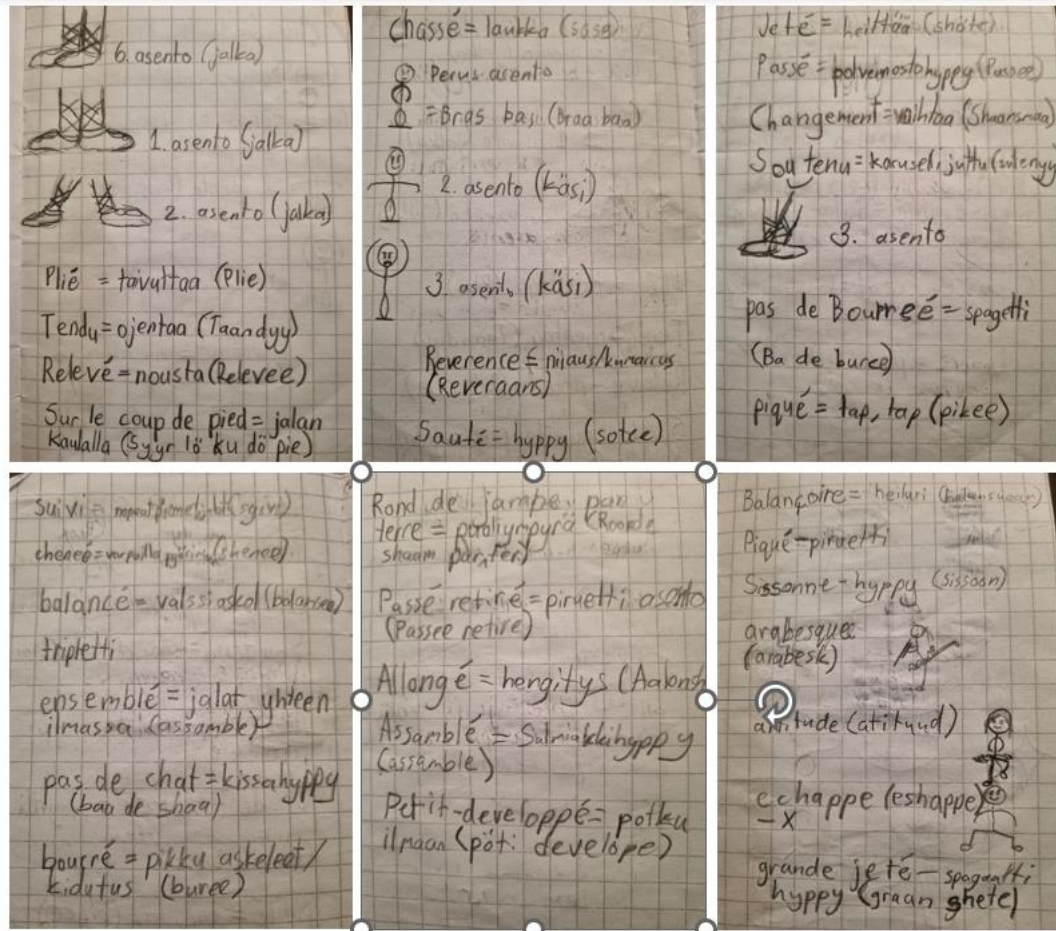 6. asento (jalka)
1. asento (jalka)
2. asento (jalka)
Plié = taivuttaa (Plie)
Tendu = ojentaa (Taandyy)
Relevé = nousta (Relevee)
Sur le coup de pied = jalan
kaulalla (Syyr lö ku dö pie)
Chassé = laukka (sase)
Perus asento
= Bras bas (Braa baa)
2. asento (käsi)
3. asento (käsi)
Reverence = niiaus/kumarrus
(Reveraans)
Sauté = hyppy (sotee)
Jeté = heittää (shöte)
Passé = polvennostohyppy (Passee)
Changement = vaihtaa (Shaansmaa)
Soutenu = karuselli juttu
3. asento
pas de Bourreé = spagetti
(Ba de buree)
piqué = tap, tap (pikee)
suivi =
cheneé = (shenee)
balancé = valssiaskol (balansee)
tripletti
ensemblé = jalat yhteen
ilmassa (assamble)
pas de chat = kissahyppy
(bao de shaa)
bourré = pikku askeleet/
kidutus (buree)
Rond de jambe par
terre = puoliympyrä (Roonde
shaam par ter)
Passé retiré = piruetti asento
(Passee retire)
Allongé = hengitys (Aalonsh
Assamblé = Salmiakkihyppy
(assamble)
Petit-developpé = potku
ilmaan (pöti develope)
Balançoire = heiluri
Piqué-piruetti
Sissonne - hyppy (sissoon)
arabesque
(arabesk)
attitude (atituud)
echappe (eshappe)
- X
grande jeté - spagaatti
hyppy (graan shete)